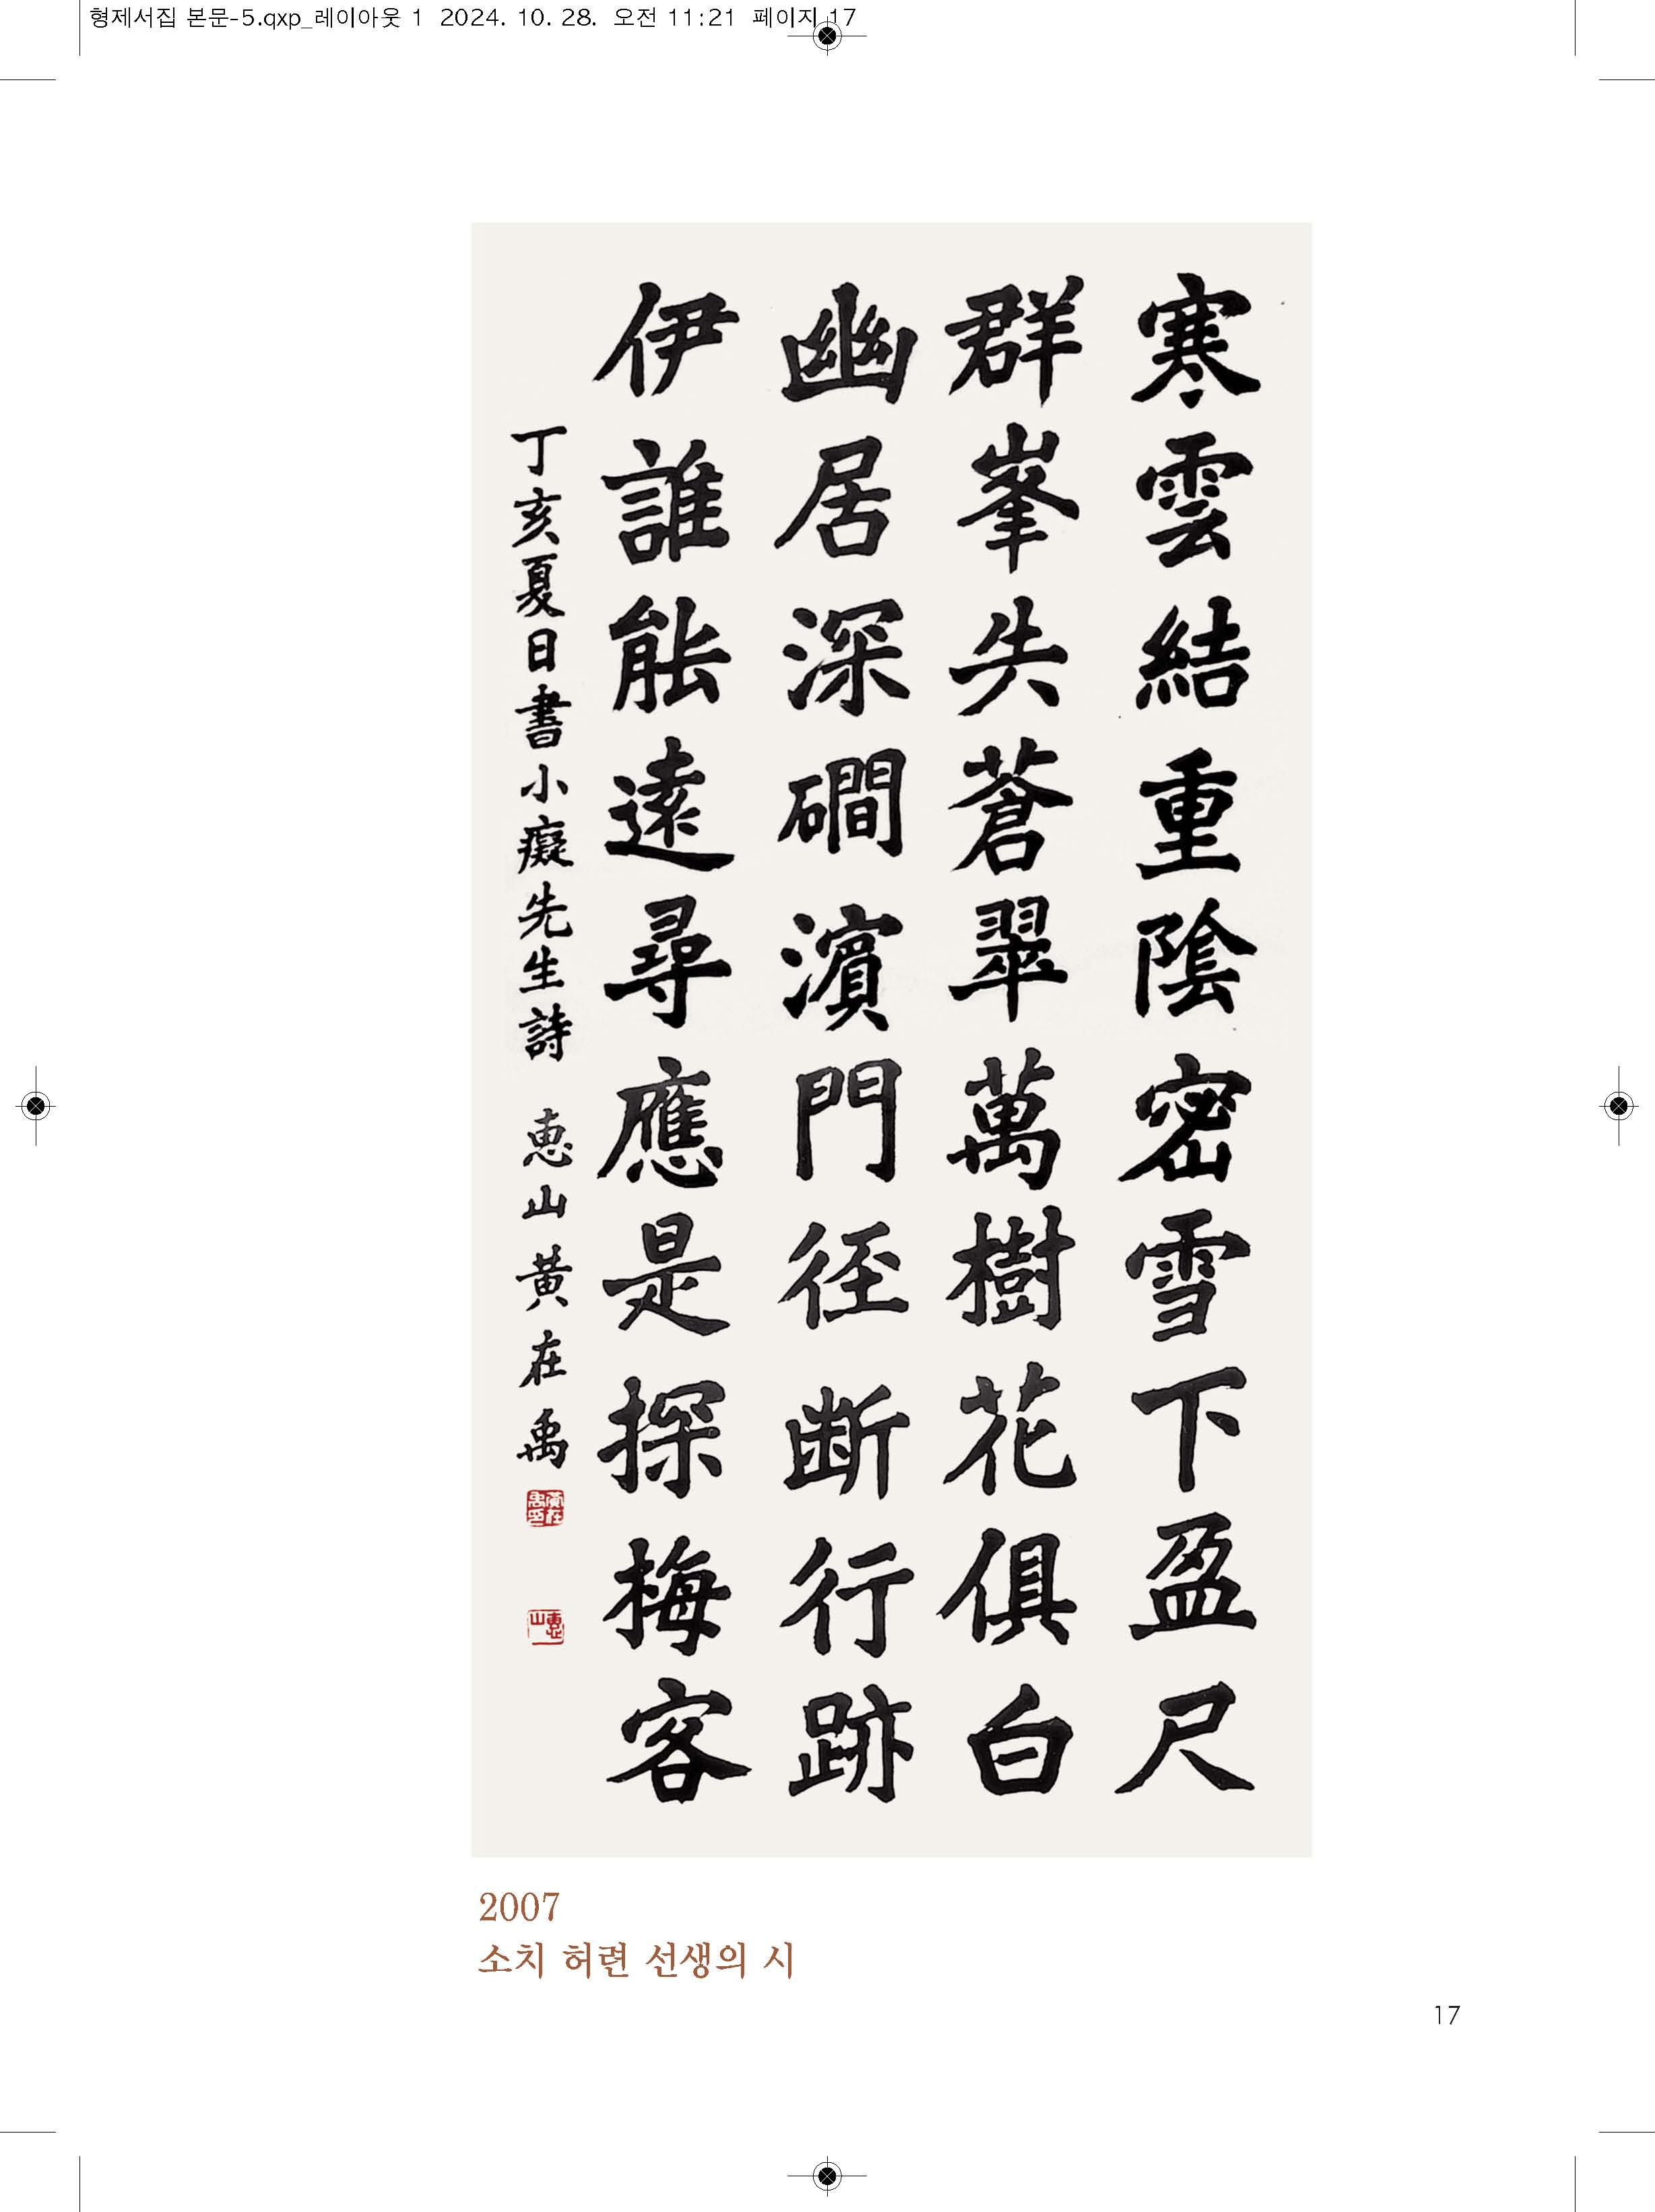 형제서집 본문-5.qxp_레이아웃 1 2024. 10. 28. 오전 11:21 페이지 17
寒雲結重陰密雪下盈尺
群峯失蒼翠萬樹花俱白
幽居深磵濱門径断行跡
伊誰能遠尋應是探梅客
丁亥夏日書小癡先生詩 恵山黃在禹
黃在禹印
惠山
2007
소치 허련 선생의 시
17